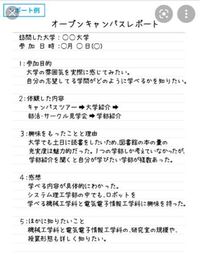 ポート例
オープンキャンパスレポート
訪問した大学：○○大学
参加日時：○月○日(○)
1：参加目的
大学の雰囲気を実際に感じてみたい。
自分の志望してる学問がどのように学べるかを知りたい。
2：体験した内容
キャンパスツアー ➡ 大学紹介 ➡
部活・サークル見学会 ➡ 学部紹介
3：興味をもったことと理由
大学でも土日に読書をしたいため、図書館の本の量の
充実度は魅力的だった。1つの学部しか考えていなかったが、
学部紹介を聞くと自分が学びたい学部が複数あった。
4：感想
学べる内容が具体的にわかった。
システム理工学部の中でも、ロボットを
学べる機械工学科と電気電子情報工学科に興味を持った。
5：ほかに知りたいこと
機械工学科と電気電子情報工学科の、研究室の規模や、
授業形態も詳しく知りたい。